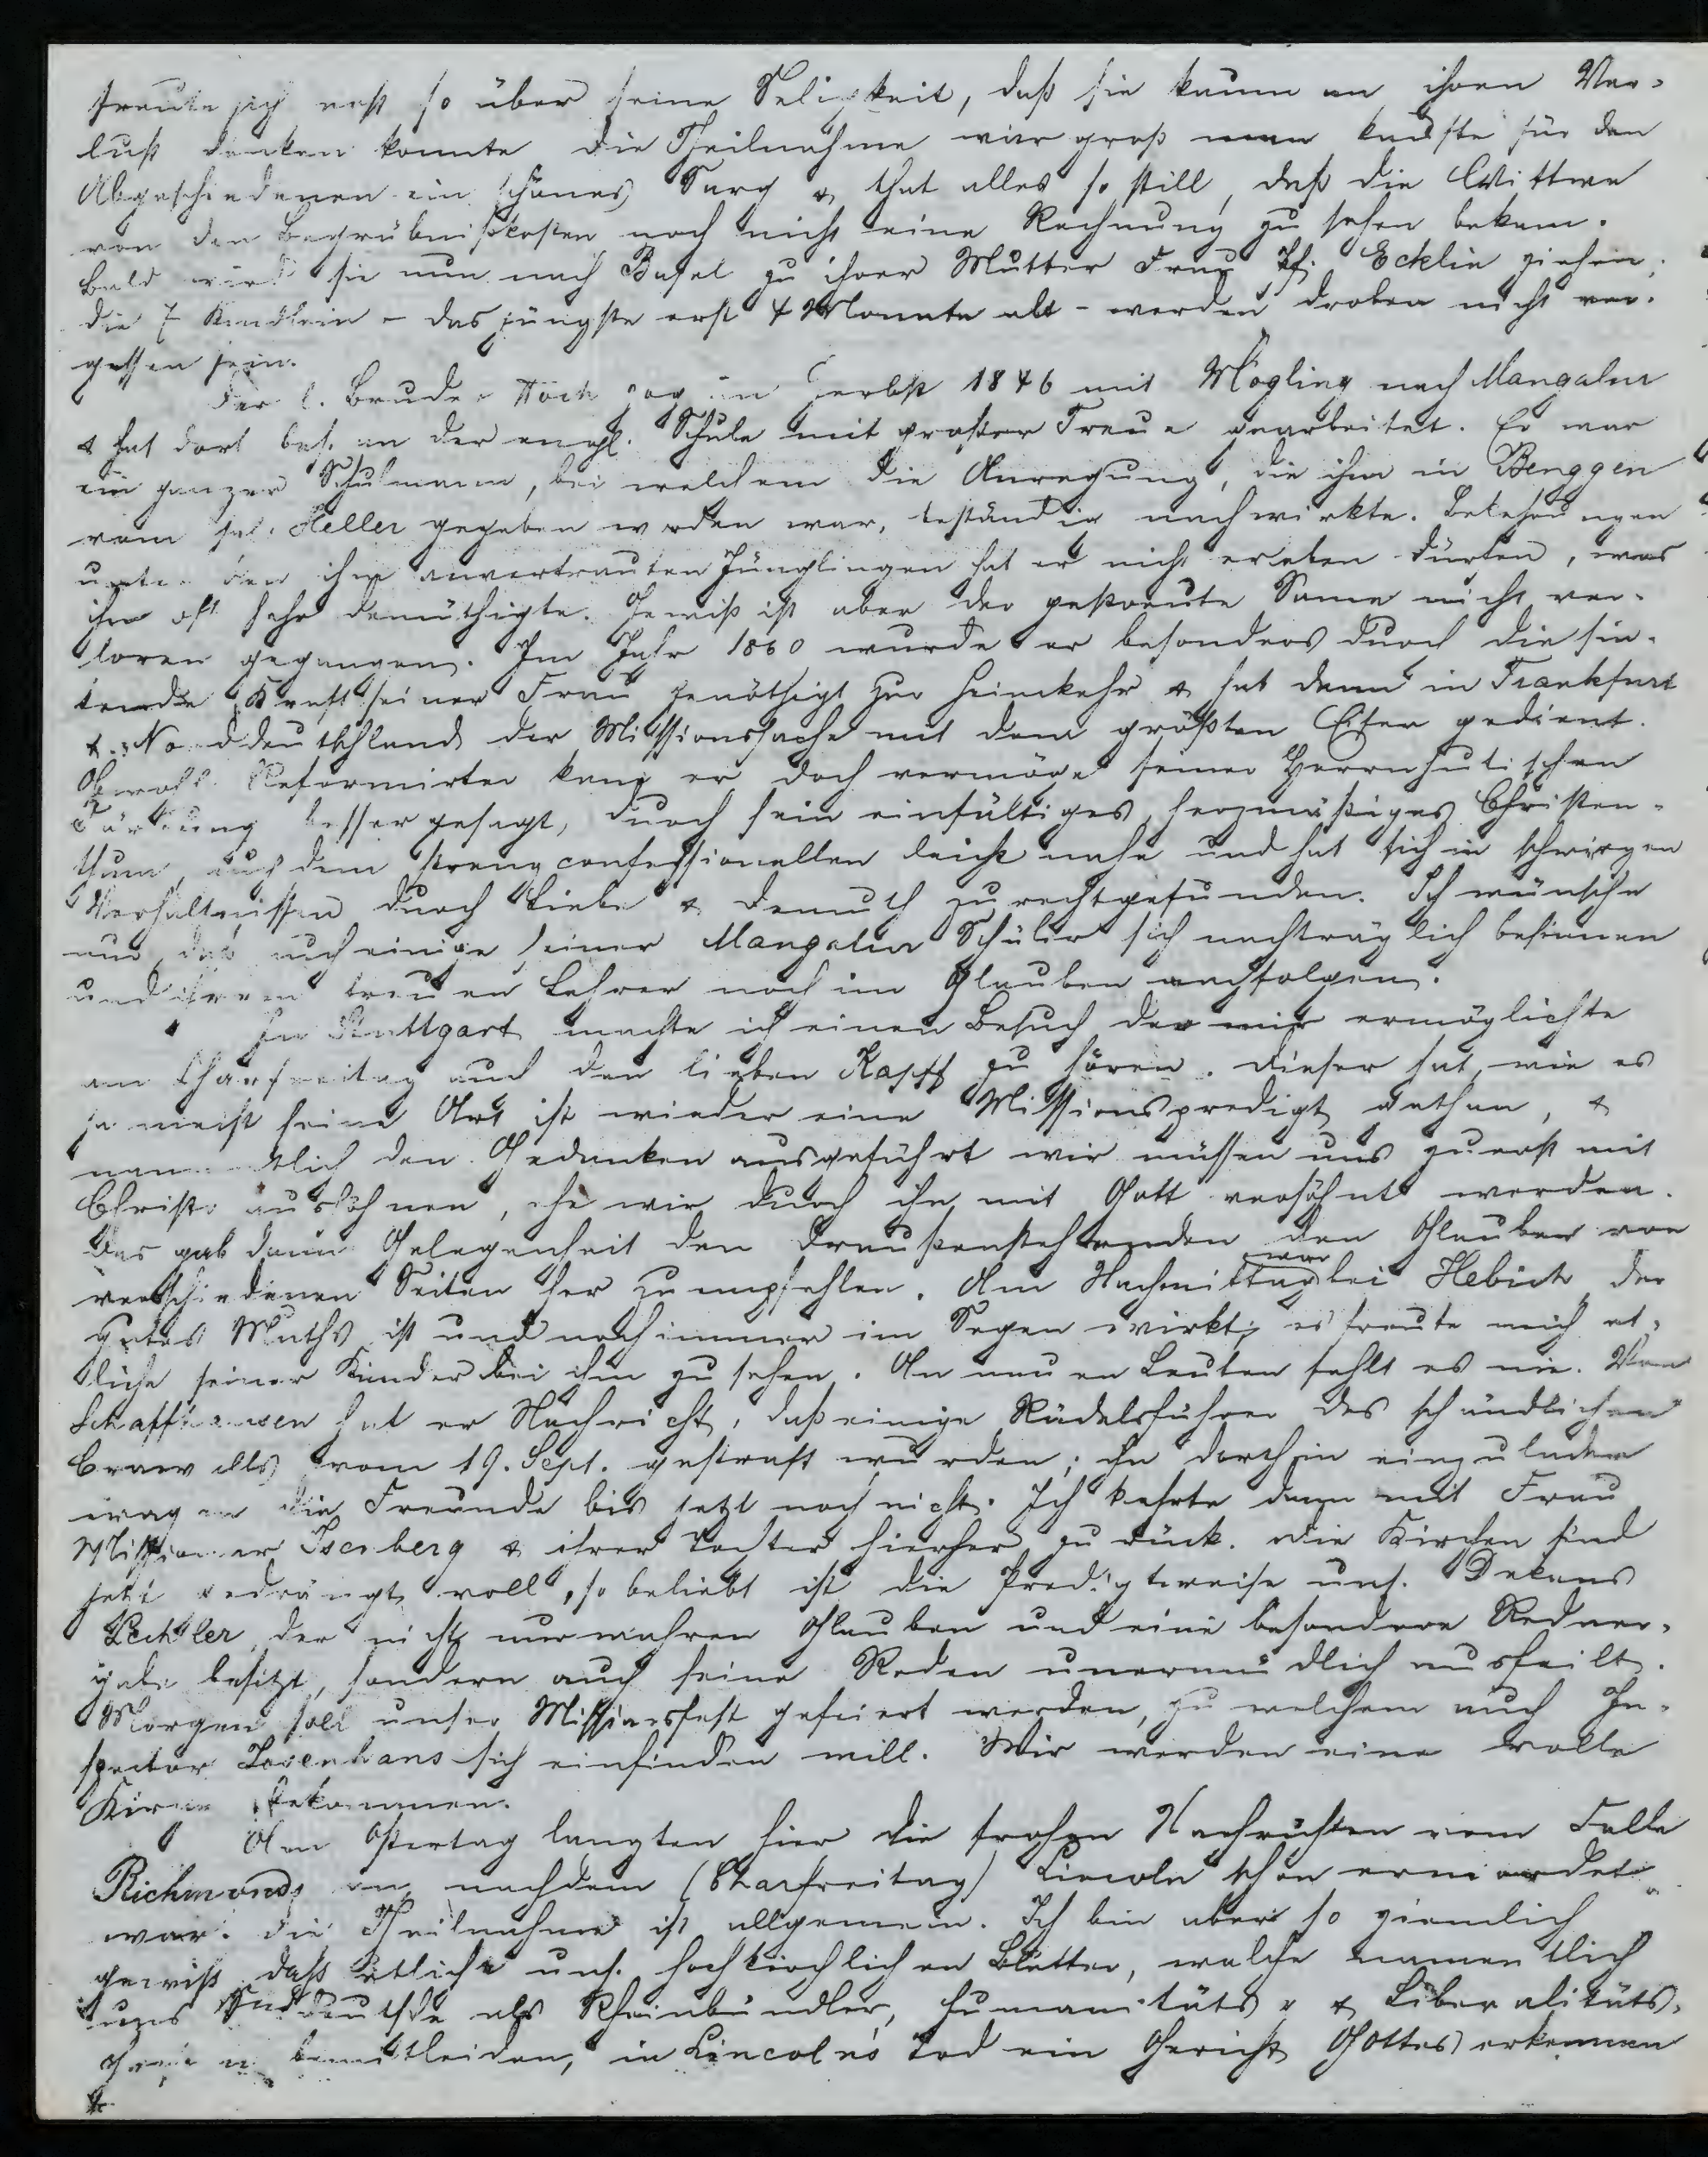 freute sich erst so über seine Seligkeit, daß sie kaum an ihren Ver-
lust denken konnte die Theilnahme war groß man kaufte für den
Abgeschiedenen ein schönes Sarg & that alles so still, daß die Wittwe
von den Begräbnißkosten noch nicht eine Rechnung zu sehen bekam.
Bald wird sie nun nach Basel zu ihrer Mutter Frau Pf. Ecklin ziehen;
die 7 Kindlein - das jüngste erst 4 Monate alt - werden droben nicht ver-
gessen sein.
Der l. Bruder Hoch zog im Herbst 1846 mit Mögling nach Mangalur
& hat dort bes. an der engl. Schule mit großer Treue gearbeitet. Er war
ein ganzer Schulmann, bei welchem die Anregung, die ihm in Benggen
vom sel. Heller gegeben worden war, beständig nachwirkte. Bekehrungen
unter den ihm anvertrauten Jünglingen hat er nicht erleben dürfen, was
ihn oft sehr demüthigte. Gewiß ist aber der gestreute Same nicht ver-
loren gegangen. Im Jahr 1860 wurde er besonders durch die sin-
kende Kraft seiner Frau genöthigt zur Heimkehr & hat dann in Frankfurt
& Norddeutschland der Missionssache mit dem größten Eifer gedient.
Obwohl Reformirter kam er doch vermöge seiner Herrnhutischen
Färbung besser gesagt, durch sein einfältiges herzmäßiges Christen-
thum, auch dem streng confessionellen leicht nahe und hat sich in schwirigen
Verhältnissen durch Liebe & Demuth zurechtgefunden. Ich wünsche
nur daß auch einige seiner Mangalur Schüler sich nachträglich besinnen
und ihrem treuen Lehrer noch im Glauben nachfolgen.
In Stuttgart machte ich einen Besuch der mir ermöglichte
am Charfreitag auch den lieben Kapff zu hören. Dieser hat, wie es
ja meist seine Art ist wieder eine Missionspredigt gethan, &
namentlich den Gedanken ausgeführt wir müssen uns zuerst mit
Christo aussöhnen, ehe wir durch ihn mit Gott versöhnt werden.
Das gab dann Gelegenheit den Draußenstehenden den Glauben von
verschiedenen Seiten her zu empfehlen. Am Nachmittag war bei Hebich der
gutes Muths ist und noch immer im Segen wirkt; es freute mich et-
liche seiner Kinder bei ihm zu sehen. An neuen Leuten fehlt es nie. Von
Schaffhausen hat er Nachricht, daß einige Rädelsführer des schändlichen
Crawalls vom 19. Sept. gestraft wurden; ihn dorthin einzuladen
wagen die Freunde bis jetzt noch nicht. Ich kehrte dann mit Frau
Missionar Isenberg & ihrer Tochter hierher zurück. Die Kirchen sind
jetzt gedrängt voll, so beliebt ist die Predigtweise uns. Dekans
Lechler, der nicht nur wahren Glauben und eine besondere Redner-
gabe besitzt, sondern auch seine Reden unermüdlich ausfeilt.
Morgen soll unser Missionsfest gefeiert werden, zu welchem auch In-
spector Josenhans sich einfinden will. Wir werden eine volle
Kirche bekommen.
Am Ostertag langten hier die frohen Nachrichten vom Falle
Richmonds an nachdem (Charfreitag) Lincoln schon ermordet
war. Die Theilnahme ist allgemein. Ich bin aber so ziemlich
gewiß daß etliche uns. hochkirchlichen Blätter, welche namentlich
uns Süddeutsche als Rheinbündler, Humanitäts- & Liberalitäts-
bemitleiden, in Lincoln's Tod ein Gericht Gottes erkennen